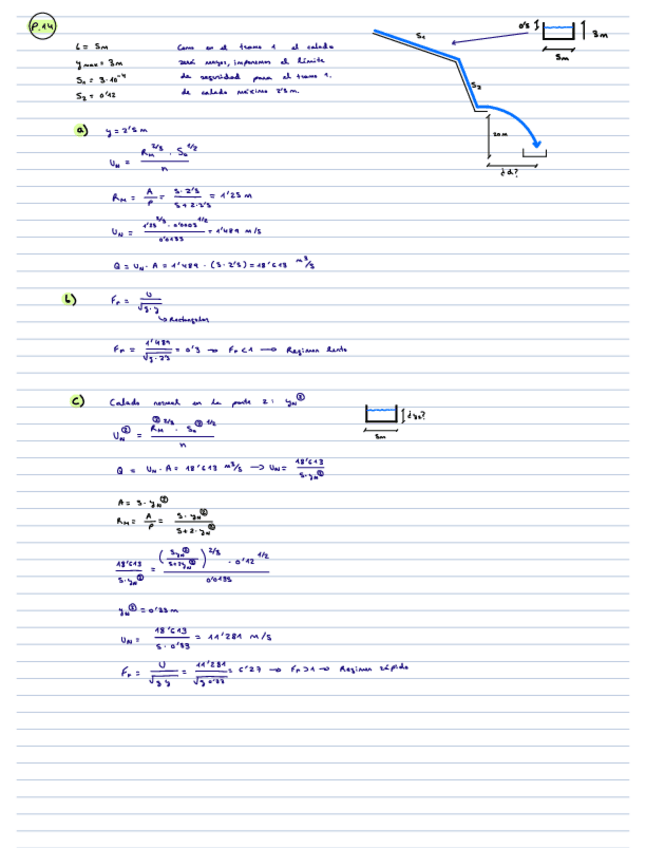 P.14
b = 5m
y max = 3m
S₁ = 3·10⁻⁴
S₂ = 0'12
Como en el tramo 1 el calado
será mayor, imponemos el límite
de seguridad para el tramo 1.
de calado máximo 2'5m.
S₁
S₂
0'5
3m
5m
20m
¿d?
a) y = 2'5 m
U_N = R_H^2/3 · S_0^1/2 / n
R_H = A/P = 5·2'5 / 5+2·2'5 = 1'25 m
U_N = 1'25^2/3 · 0'0003^1/2 / 0'0135 = 1'489 m/s
Q = U_N · A = 1'489 · (5·2'5) = 18'613 m³/s
b) Fr = U / √g·y
↳ Rectangular
Fr = 1'489 / √g·2'5 = 0'3 → Fr < 1 → Regimen lento
c) Calado normal en la parte 2: y_N②
U_N② = R_H②^2/3 · S_0②^1/2 / n
¿y₂?
5m
Q = U_N · A = 18'613 m³/s → U_N = 18'613 / 5·y_N②
A = 5·y_N②
R_H = A/P = 5·y_N② / 5+2·y_N②
18'613 / 5·y_N② = (5y_N② / 5+2y_N②)^2/3 · 0'12^1/2 / 0'0135
y_N② = 0'33 m
U_N = 18'613 / 5·0'33 = 11'281 m/s
Fr = U / √g·y = 11'281 / √g·0'33 = 6'27 → Fr > 1 → Regimen rápido